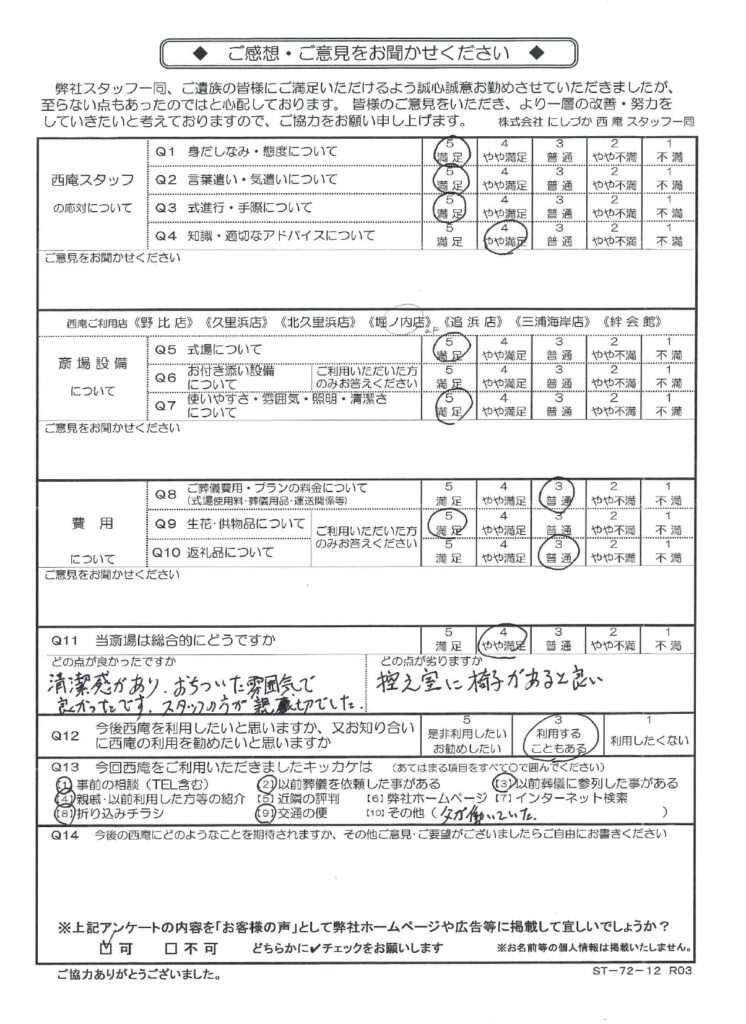 ◆ ご感想・ご意見をお聞かせください ◆
弊社スタッフ一同、ご遺族の皆様にご満足いただけるよう誠心誠意お勤めさせていただきましたが、
至らない点もあったのではと心配しております。皆様のご意見をいただき、より一層の改善・努力を
していきたいと考えておりますので、ご協力をお願い申し上げます。 株式会社 にしづか 西庵 スタッフ一同
西庵スタッフ
の応対について
Q1 身だしなみ・態度について 5 満足 4 やや満足 3 普通 2 やや不満 1 不満
Q2 言葉遣い・気遣いについて 5 満足 4 やや満足 3 普通 2 やや不満 1 不満
Q3 式進行・手際について 5 満足 4 やや満足 3 普通 2 やや不満 1 不満
Q4 知識・適切なアドバイスについて 5 満足 4 やや満足 3 普通 2 やや不満 1 不満
ご意見をお聞かせください
西庵ご利用店 《野比店》 《久里浜店》 《北久里浜店》 《堀ノ内店》 《追浜店》 《三浦海岸店》 《絆会館》
斎場設備
について
Q5 式場について 5 満足 4 やや満足 3 普通 2 やや不満 1 不満
Q6 お付き添い設備について ご利用いただいた方のみお答えください 5 満足 4 やや満足 3 普通 2 やや不満 1 不満
Q7 使いやすさ・雰囲気・照明・清潔さについて 5 満足 4 やや満足 3 普通 2 やや不満 1 不満
ご意見をお聞かせください
費用
について
Q8 ご葬儀費用・プランの料金について (式場使用料・葬儀用品・運送関係等) 5 満足 4 やや満足 3 普通 2 やや不満 1 不満
Q9 生花・供物品について ご利用いただいた方のみお答えください 5 満足 4 やや満足 3 普通 2 やや不満 1 不満
Q10 返礼品について 5 満足 4 やや満足 3 普通 2 やや不満 1 不満
ご意見をお聞かせください
Q11 当斎場は総合的にどうですか 5 満足 4 やや満足 3 普通 2 やや不満 1 不満
どの点が良かったですか
清潔感があり、おちついた雰囲気で
良かったです。スタッフの方が親切でした。
どの点が劣りますか
控え室に椅子があると良い
Q12 今後西庵を利用したいと思いますか、又お知り合いに西庵の利用を勧めたいと思いますか 5 是非利用したいお勧めしたい 3 利用することもある 1 利用したくない
Q13 今回西庵をご利用いただきましたキッカケは (あてはまる項目をすべて○で囲んでください)
【1】事前の相談(TEL含む) 【2】以前葬儀を依頼した事がある 【3】以前葬儀に参列した事がある
【4】親戚・以前利用した方等の紹介 【5】近隣の評判 【6】弊社ホームページ 【7】インターネット検索
【8】折り込みチラシ 【9】交通の便 【10】その他 (父が働いていた。)
Q14 今後の西庵にどのようなことを期待されますか、その他ご意見・ご要望がございましたらご自由にお書きください
※上記アンケートの内容を「お客様の声」として弊社ホームページや広告等に掲載して宜しいでしょうか?
☑可 □不可 どちらかに✓チェックをお願いします ※お名前等の個人情報は掲載いたしません。
ご協力ありがとうございました。 ST-72-12 R03